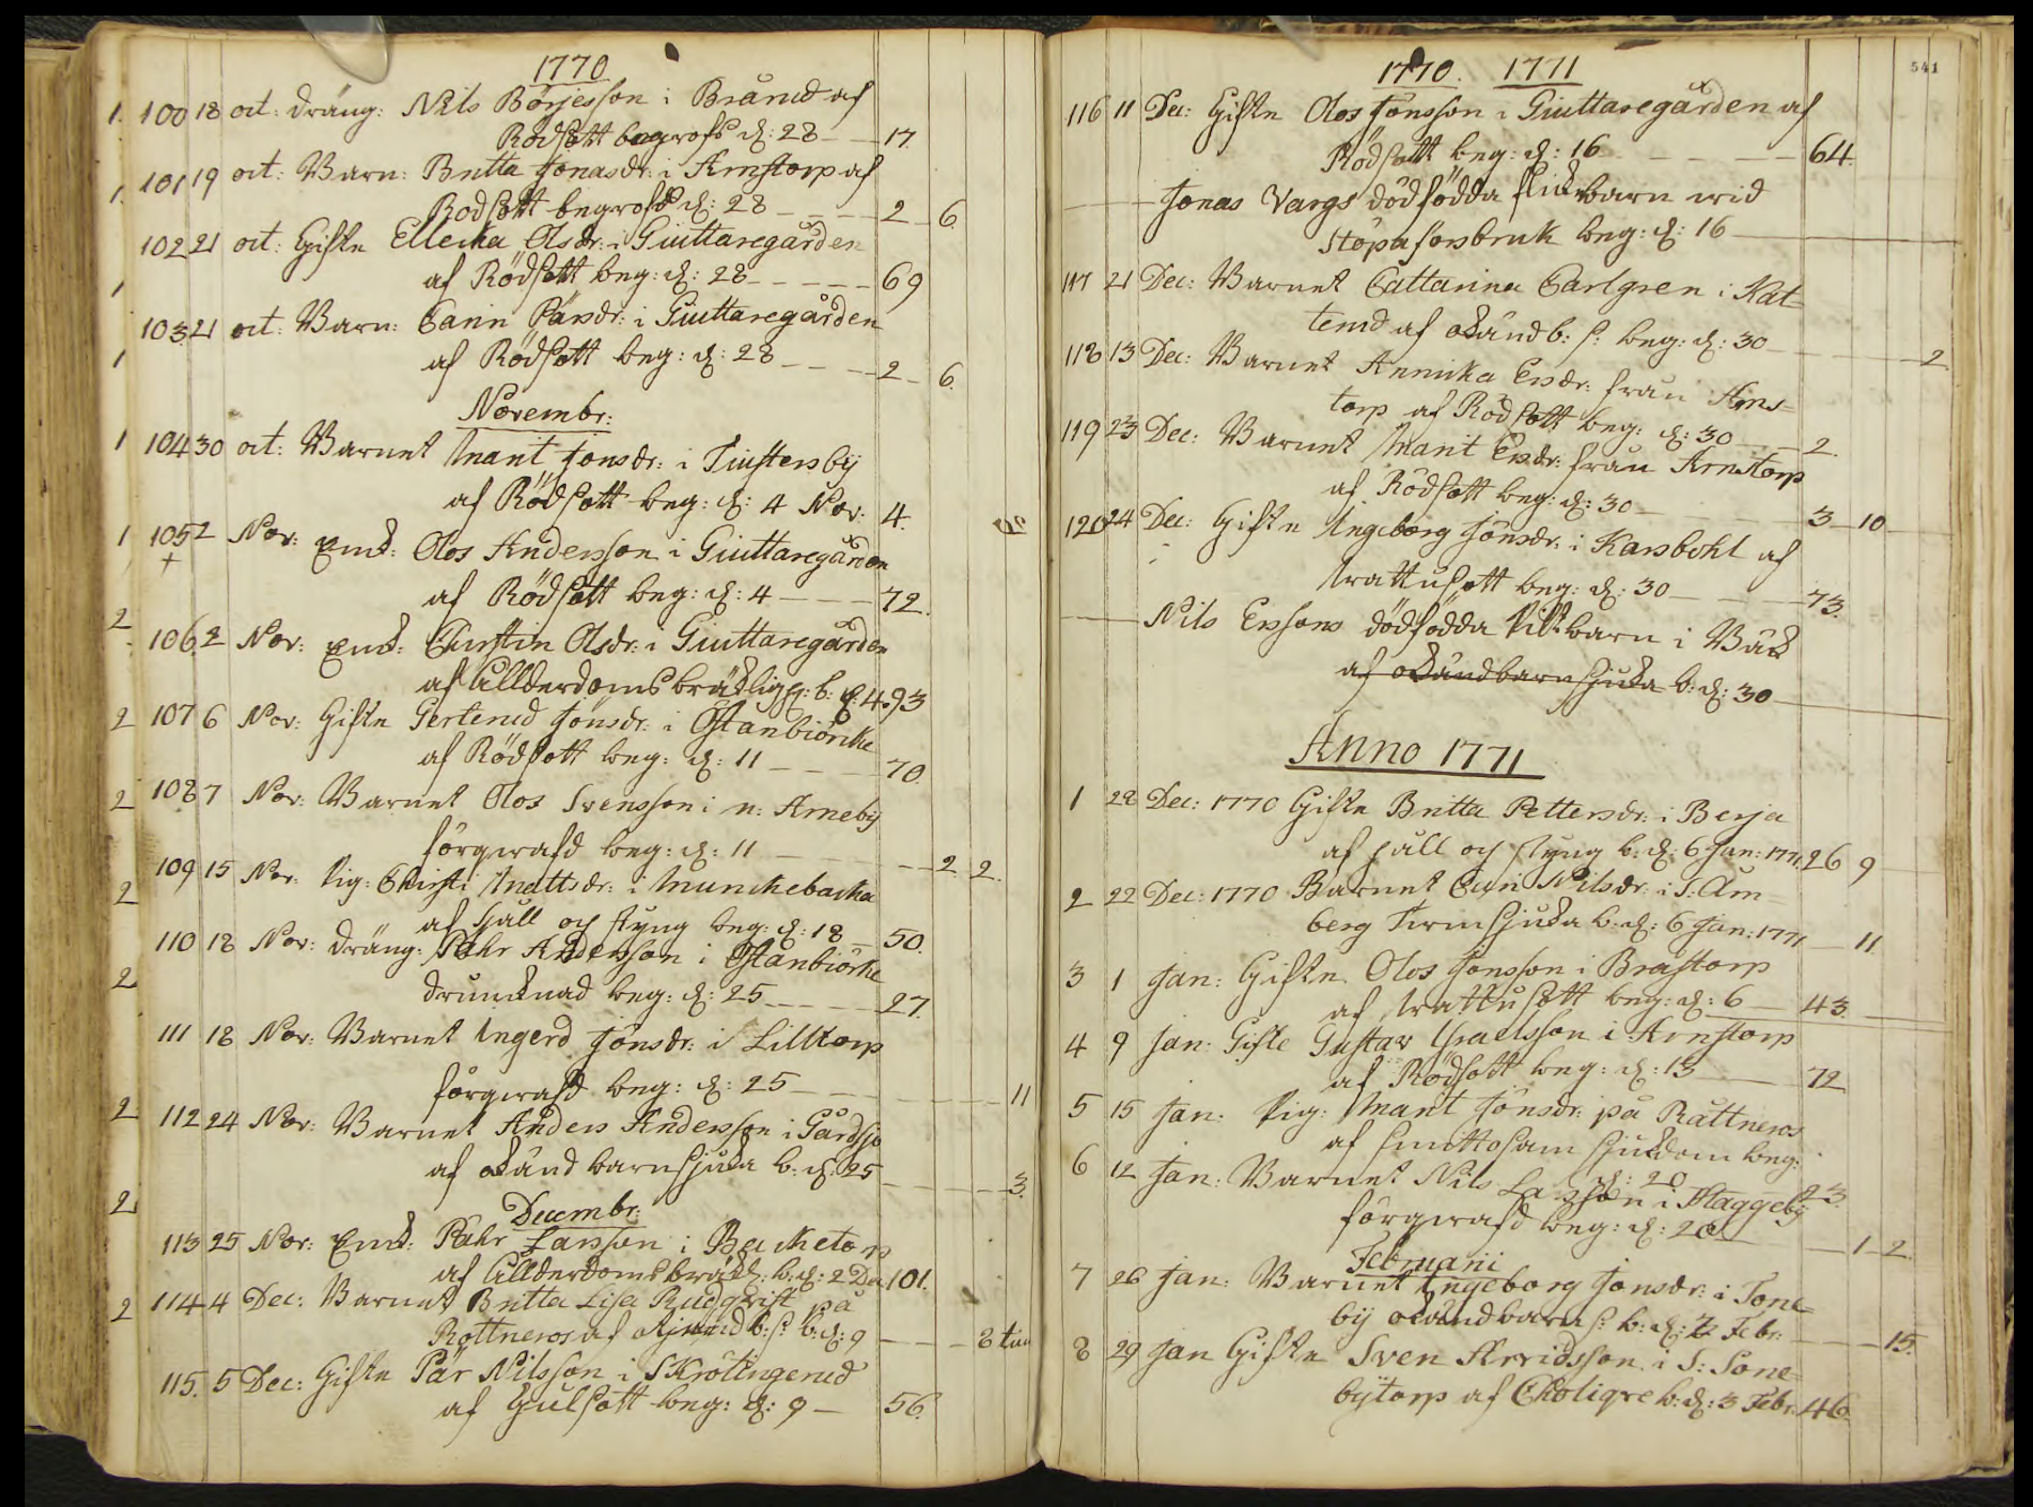 1770
1. 100 18 oct: dräng: Nils Börjesson i Bråned af
Rödsott begrofs d: 28 — 17.
1. 101 19 oct: Barn: Britta Jonasdr: i Arnstorp af
Rödsott begrofs d: 28 — 2 — 6.
102 21 oct: Gifte Ellecka Olsdr: i Giuttaregården
1 af Rödsott beg: d: 28 — 69
103. 21 oct: Barn: Carin Pärsdr: i Giuttaregården
1 af Rödsott beg: d: 28 — 2 — 6.
Novembr:
1 104 30 oct: Barnet Marit Jonsdr: i Tiustersbÿ
af Rödsott beg: d: 4 Nov: 4.
1 105 2 Nov: Enk: Olof Andersson i Giuttaregården
+ af Rödsott beg: d: 4 — 72.
2 106. 2 Nov: Enk: Chirstin Olsdr: i Giuttaregården
af Ållderdoms bräklig: b: d: 4. 93
2 107 6 Nov: Gifte Gertrud Jönsdr: i Östanbiörcke
af Rödsott beg: d: 11 — 70.
2 108 7 Nov: Barnet Olof Svensson i n: Arnebÿ
förqwafd beg: d: 11 — 2 2.
2 109 15 Nov: Pig: Chirsti Mattsdr: i Munckebacka
af håll och styng beg: d: 18 — 50.
110 18 Nov: dräng: Påhr Andersson i Östanbiörke
2 drunknad beg: d: 25 — 27.
111 18 Nov: Barnet Ingerd Jönsdr: i Lilltorp
förqwafd beg: d: 25 — 11
2 112 24 Nov: Barnet Anders Andersson i Gårdsjö
af okänd barnsjuka b: d: 25 — 3.
2 Decembr:
113 25 Nov: Enk: Påhr Larsson i Becketorp
af Ållderdoms bräkl: b: d: 2 Dec 101.
2 114 4 Dec: Barnet Britta Lisa Rudqvist på
Rottneros af okiend b: s: b: d: 9 — 8 tim
115. 5 Dec: Gifte Pär Nilsson i Skrolingerud
af Gulsott beg: d: 9 — 56.
1770. 1771
541
116 11 Dec: Gifte Olof Jonsson i Giuttaregården af
Rödsott beg: d: 16 — 64.
— Jonas Vargs dödfödda flickbarn wid
Stöpaforsbruk beg: d: 16 —
117 21 Dec: Barnet Cattarina Carlgren i Kat=
terud af okänd b: s: beg: d: 30 — 2
118 13 Dec: Barnet Annika Ersdr: från Arns=
torp af Rödsott beg: d: 30 — 2.
119 23 Dec: Barnet Marit Ersdr: från Arnstorp
af Rödsott beg: d: 30 — 3 — 10
120 24 Dec: Gifte Ingeborg Jönsdr: i Karsbohl af
Wattusott beg: d: 30 — 73.
— Nils Erssons dödfödda Pilt barn i Bäck
af okänd barnsjuka b: d: 30 —
Anno 1771
1 28 Dec: 1770 Gifte Britta Pettersdr: i Berja
af håll och styng b: d: 6 Jan: 1771. 26 9
2 22 Dec: 1770 Barnet Carin Nilsdr: i S: Åm=
berg Twinsjuka b: d: 6 Jan: 1771 — 11
3 1 Jan: Gifte Olof Jonsson i Bråstorp
af Wattusott beg: d: 6 — 43.
4 9 Jan: Gifte Gustav Israelsson i Arnstorp
af Rödsott beg: d: 13 — 72
5 15 Jan: Pig: Marit Jönsdr: på Råttneros
af smittosam sjukdom beg:
d: 20 23.
6 12 Jan: Barnet Nils Larsson i Haggebÿ
förqwafd beg: d: 20 — 1 — 2.
Februarii
7 26 Jan: Barnet Ingeborg Jonsdr: i Tone=
bÿ okänd barns: b: d: 3 Febr: — 15.
8 29 Jan Gifte Sven Arvidsson i S: Sone=
bÿtorp af Cholique b: d: 3 Febr: 46.